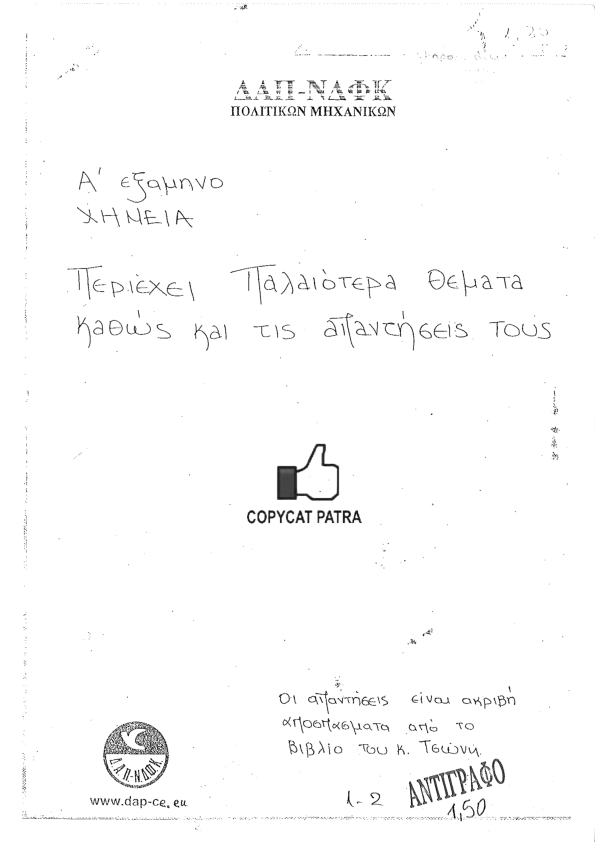 1,20
ΔΑΠ-ΝΔΦΚ
ΠΟΛΙΤΙΚΩΝ ΜΗΧΑΝΙΚΩΝ
Α' εξαμηνο
ΧΗΜΕΙΑ
Περιέχει Παλαιότερα θέματα
καθώς και τις απαντήσεις τους
COPYCAT PATRA
Οι απαντήσεις είναι ακριβή
αποσπασματα από το
βιβλίο του κ. Τσώνη.
Δ.Α.Π.-Ν.Δ.Φ.Κ.
www.dap-ce.eu
1-2
ΑΝΤΙΓΡΑΦΟ
1,50